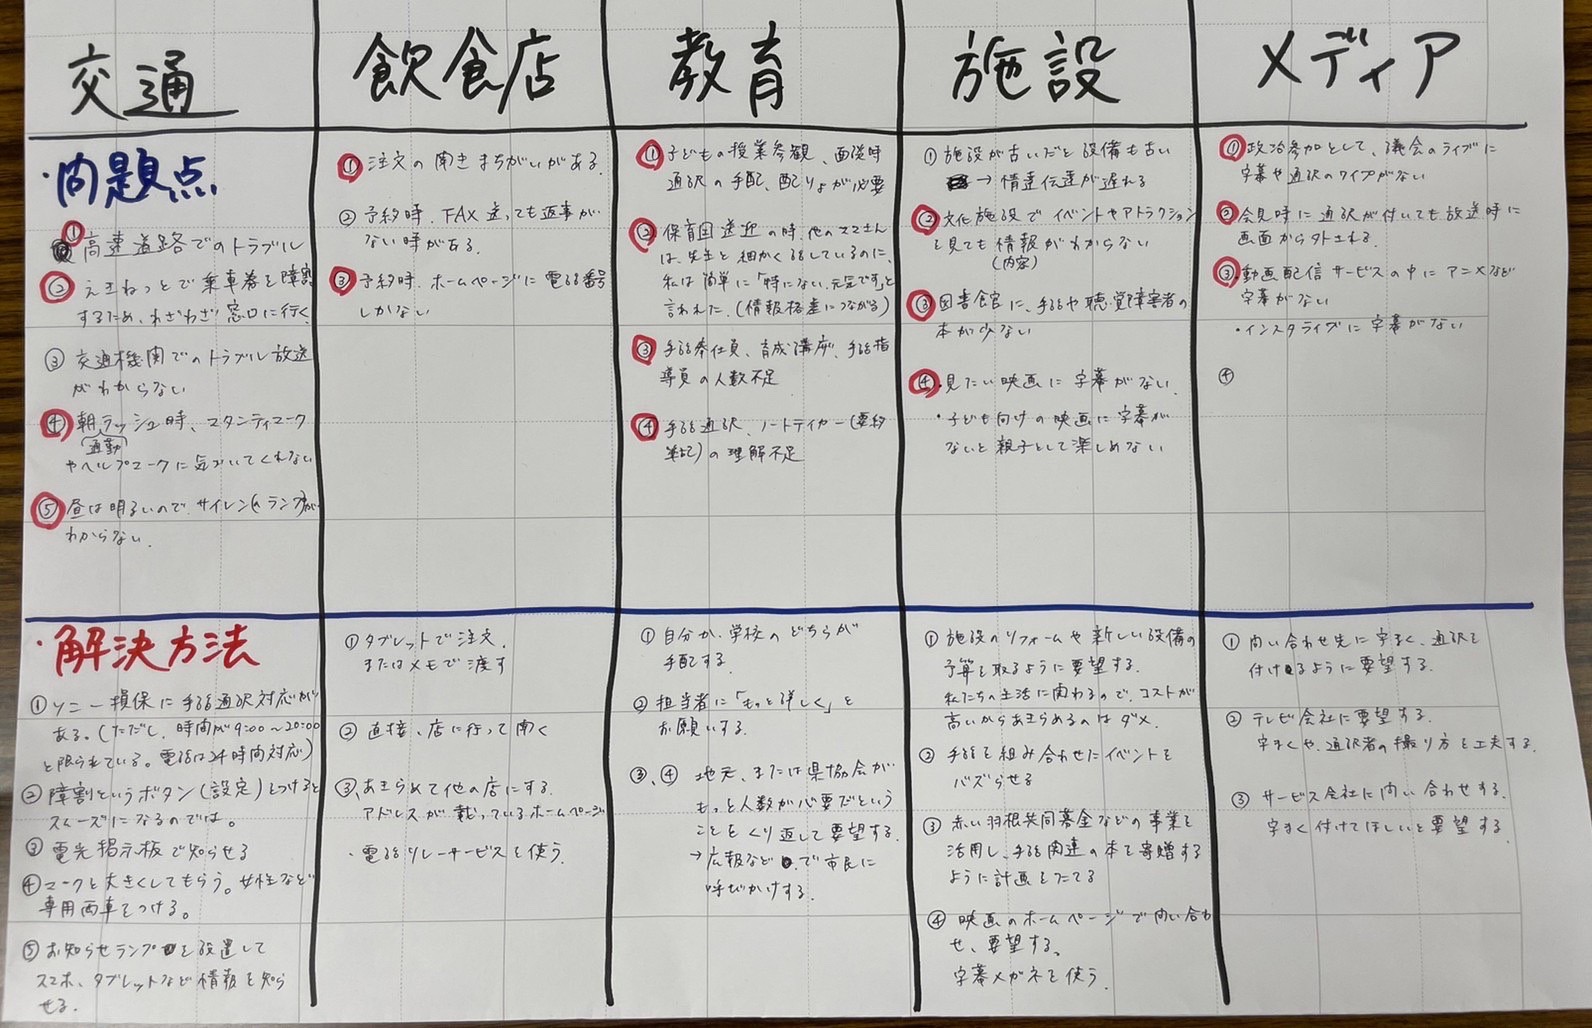 交通
・問題点
① 高速道路でのトラブル
② えきねっとで乗車券を障割
するため、わざわざ窓口に行く
③ 交通機関でのトラブル放送
がわからない
④ 朝ラッシュ時、マタニティマーク
通勤
やヘルプマークに気づいてくれない
⑤ 昼は明るいので、サイレン(ランプ)が
わからない。
・解決方法
① ソニー損保に手話通訳対応が
ある。(ただし、時間が9:00〜20:00
と限られている。電話は24時間対応)
② 障割というボタン(設定)をつけると
スムーズになるのでは。
③ 電光掲示板で知らせる
④ マークを大きくしてもらう。女性など
専用両車をつける。
⑤ お知らせランプを設置して
スマホ、タブレットなど情報を知ら
せる。
飲食店
① 注文の聞きまちがいがある。
② 予約時、FAX送っても返事が
ない時がある。
③ 予約時、ホームページに電話番号
しかない
① タブレットで注文。
またはメモで渡す
② 直接、店に行って聞く
③ あきらめて他の店にする。
アドレスが載っているホームページ
・電話リレーサービスを使う。
教育
① 子どもの授業参観、面談時
通訳の手配、配りょが必要
② 保育園送迎の時、他のママさん
は、先生と細かく話しているのに、
私は簡単に「特にない、元気です」と
言われた。(情報格差につながる)
③ 手話奉仕員、育成講座、手話指
導員の人数不足
④ 手話通訳、ノートテイカー(要約
筆記)の理解不足
① 自分か、学校のどちらが
手配する。
② 担当者に「もっと詳しく」と
お願いする。
③、④ 地元、または県協会が
もっと人数が必要だという
ことをくり返して要望する。
→広報などで市民に
呼びかけする。
施設
① 施設が古いだと設備も古い
→ 情達伝達が遅れる
② 文化施設でイベントやアトラクション
を見ても情報がわからない
(内容)
③ 図書館に、手話や聴覚障害者の
本が少ない
④・見たい映画に字幕がない
・子ども向けの映画に字幕が
ないと親子として楽しめない
① 施設のリフォームや新しい設備の
予算を取るように要望する。
私たちの生活に関わるので、コストが
高いからあきらめるのはダメ。
② 手話を組み合わせたイベントを
バズらせる
③ 赤い羽根共同募金などの事業を
活用し、手話関連の本を寄贈する
ように計画をたてる
④ 映画のホームページで問い合わ
せ、要望する。
字幕メガネを使う。
メディア
① 政治参加として、議会のライブに
字幕や通訳のワイプがない
② 会見時に通訳が付いても放送時に
画面から外される。
③・動画配信サービスの中にアニメなど
字幕がない
・インスタライブに字幕がない
④
① 問い合わせ先に字まく、通訳を
付けるように要望する。
② テレビ会社に要望する。
字まくや、通訳者の撮り方を工夫する。
③ サービス会社に問い合わせする。
字まく付けてほしいと要望する